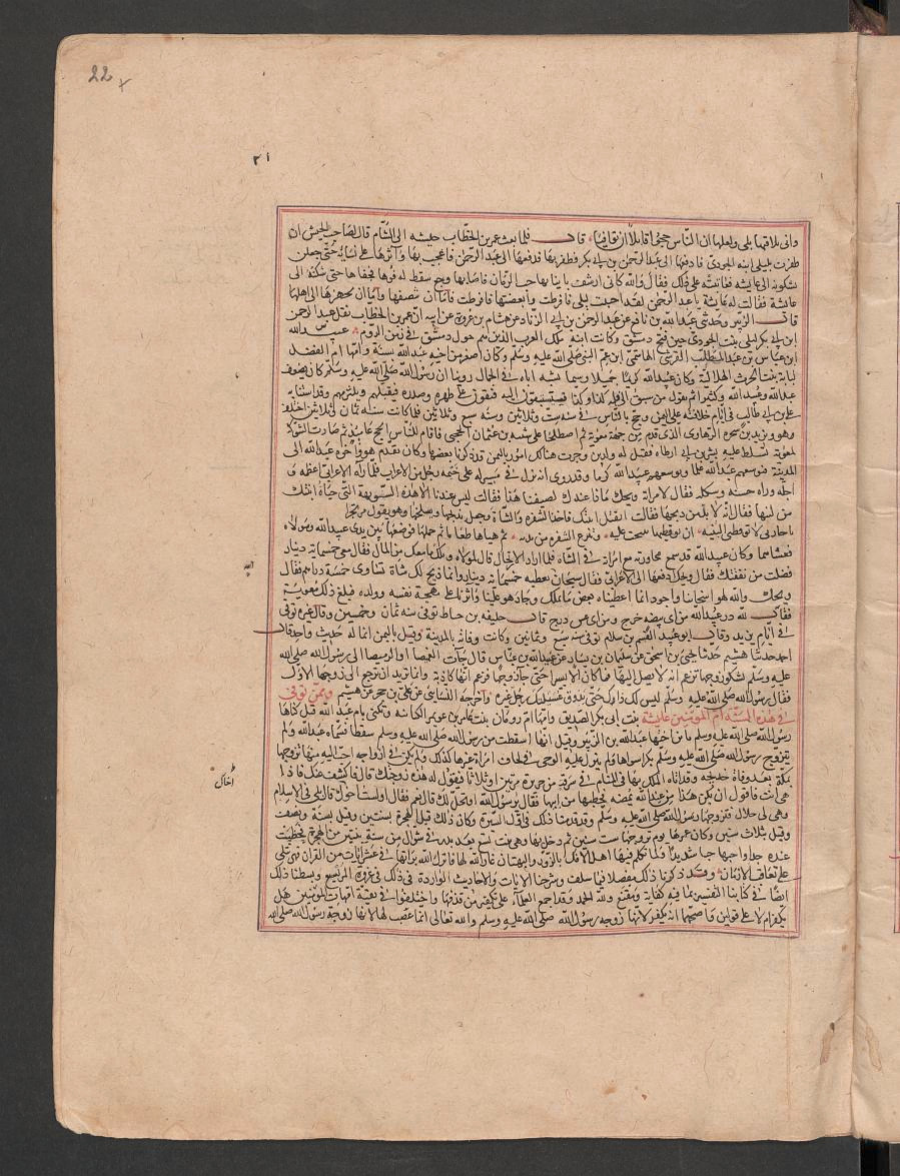 22
٢١
واني بلاقيها بلى ولعلها ان الناس حجوا قابلا ان توافيا قال فلما بعث عمر بن الخطاب جيشه الى الشام قال لصاحب الجيش ان
ظفرت بليلى ابنة الجودي فادفعها الى عبد الرحمن بن ابي بكر فظفر بها فدفعها الى عبد الرحمن فاعجب بها وآثرها على نسائه حتى جعلن
يشكونه الى عايشة فعاتبته على ذلك فقال والله كاني ارشف بانيابها حب الرمان فاصابها وجع سقط له فوها فجفاها حتى شكته الى
عايشة فقالت له عايشة يا عبد الرحمن لقد احببت ليلى فافرطت وابغضتها فافرطت فاما ان تنصفها واما ان تجهزها الى اهلها
قال الزبير وحدثني عبد الله بن نافع عن عبد الرحمن بن ابي الزناد عن هشام بن عروة عن ابيه ان عمر بن الخطاب نفل عبد الرحمن
ابن ابي بكر ليلى بنت الجودي حين فتح دمشق وكانت ابنة ملك العرب الذين هم حول دمشق في زمن الروم عبيد الله
ابن عباس بن عبد المطلب القرشي الهاشمي ابن عم النبي صلى الله عليه وسلم وكان اصغر من اخيه عبد الله بسنة وامهما ام الفضل
لبابة بنت الحرث الهلالية وكان عبيد الله كريما جميلا وسيما يشبه اباه في الجمال روينا ان رسول الله صلى الله عليه وسلم كان يصف
عبد الله وعبيد الله وكثيرا ثم يقول من سبق الى فله كذا وكذا فيستبقون اليه فيقعون على ظهره وصدره فيقبلهم ويلتزمهم وقد استنابه
علي بن ابي طالب في ايام خلافته على اليمن وحج بالناس في سنة ست وثلاثين وسنة سبع وثلاثين فلما كانت سنة ثمان وثلاثين اختلف
هو ويزيد بن سخبرة الرهاوي الذي قدم من جهة معوية ثم اصطلحا على شيبة بن عثمان الحجبي فاقام للناس الحج عامئذ ثم صارت الشوكة
لمعوية تسلط عليه بشر بن ابي ارطاة فقتل له ولدين وجرت هناك امور باليمن قد ذكرنا بعضها وكان يقدم هو واخوه عبد الله الى
المدينة فيوسعهم عبد الله علما ويوسعهم عبيد الله كرما وقد روي انه نزل في مسير له على خيمة رجل من الاعراب فلما رآه الاعرابي اعظمه و
اجله وراى حسنه وشكله فقال لامراته ويحك ماذا عندك لضيفنا هذا فقالت ليس عندنا الا هذه الشويهة التي حياة ابنتك
من لبنها فقال انه لا بد من ذبحها فقالت اتقتل ابنتك فاخذ الشفرة والشاة وجعل يذبحها ويسلخها وهو يقول مرتجزا
يا جارتي لا توقظي البنيه ان توقظيها تنتحب عليه وتنزع الشفرة من يديه ثم هياها طعاما ثم حملها فوضعها بين يدي عبيد الله ومولاه
فعشاهما وكان عبيد الله قد سمع محاورته مع امراته في الشاة فلما اراد الارتحال قال لمولاه ويلك ما معك من المال فقال معي خمسماية دينار
فضلت من نفقتك فقال ويحك ادفعها الى الاعرابي فقال سبحان الله تعطيه خمسماية دينار وانما ذبح لك شاة تساوي خمسة دراهم فقال
ويحك والله لهو اسخى منا واجود انما اعطيناه بعض ما نملك وجاد هو علينا وآثرنا على مهجة نفسه وولده فبلغ ذلك معوية
فقال لله در عبيد الله من اي بيضة خرج ومن اي عش درج قال خليفة بن خياط توفي سنة ثمان وخمسين وقال غيره توفي
في ايام يزيد وقال ابو عبيد القسم بن سلام توفي سنة سبع وثمانين وكانت وفاته بالمدينة وقيل باليمن انما له حديث واحد قال
احمد حدثنا هشيم حدثنا يحيى بن اسحق عن سليمان بن يسار عن عبيد الله بن عباس قال جات الغميصا او الرميصا الى رسول الله صلى الله
عليه وسلم تشكو زوجها تزعم انه لا يصل اليها فما كان الا يسيرا حتى جا زوجها فزعم انها كاذبة وانها تريد ان ترجع الى زوجها الاول
فقال رسول الله صلى الله عليه وسلم ليس لك ذلك حتى يذوق عسيلتك رجل غيره واخرجه النسائي عن علي بن حجر عن هشيم وممن توفي
في هذه السنة ام المومنين عايشة بنت ابي بكر الصديق وامها ام رومان بنت عامر بن عويمر الكنانية وتكنى بام عبد الله قيل كناها
رسول الله صلى الله عليه وسلم بابن اختها عبد الله بن الزبير وقيل انها اسقطت من رسول الله صلى الله عليه وسلم سقطا فسماه عبد الله ولم
يتزوج رسول الله صلى الله عليه وسلم بكرا سواها ولم ينزل عليه الوحي في لحاف امراة غيرها كذلك ولم يكن في ازواجه احب اليه منها تزوجها
بمكة بعد وفاة خديجة وقد اتاه الملك بها في المنام في سرقة من حريرة مرتين او ثلاثا فيقول له هذه زوجتك قال فاكشف عنك فاذا
هي انت فاقول ان يكن هذا من عند الله يمضه فخطبها من ابيها فقال يرسول الله اوتحل لك قال نعم فقال اولست اخوك قال بلى في الاسلام
وهي لي حلال فتزوجها رسول الله صلى الله عليه وسلم وقد قدمنا ذلك في اول السيرة وكان ذلك قبل الهجرة بسنتين وقيل بسنة ونصف
وقيل بثلاث سنين وكان عمرها يوم تزوجها ست سنين ثم دخل بها وهي بنت تسع بعد بدر في شوال من سنة ثنتين من الهجرة فحظيت
عنده جدا واحبها حبا شديدا ولما تكلم فيها اهل الافك بالزور والبهتان غار الله لها فانزل الله براتها في عشر ايات من القران فهي تتلى
على تعاقب الازمان وقد ذكرنا ذلك مفصلا فيما سلف وشرحنا الايات والاحاديث الواردة في ذلك في غزوة المريسيع وبسطنا ذلك
ايضا في كتابنا التفسير بما فيه كفاية ومقنع ولله الحمد وقد اجمع العلماء على تكفير من قذفها واختلفوا في بقية امهات المومنين هل
يكفر ام لا على قولين واصحهما انه يكفر لانها زوجة رسول الله صلى الله عليه وسلم والله تعالى انما غضب لها لانها زوجة رسول الله صلى الله